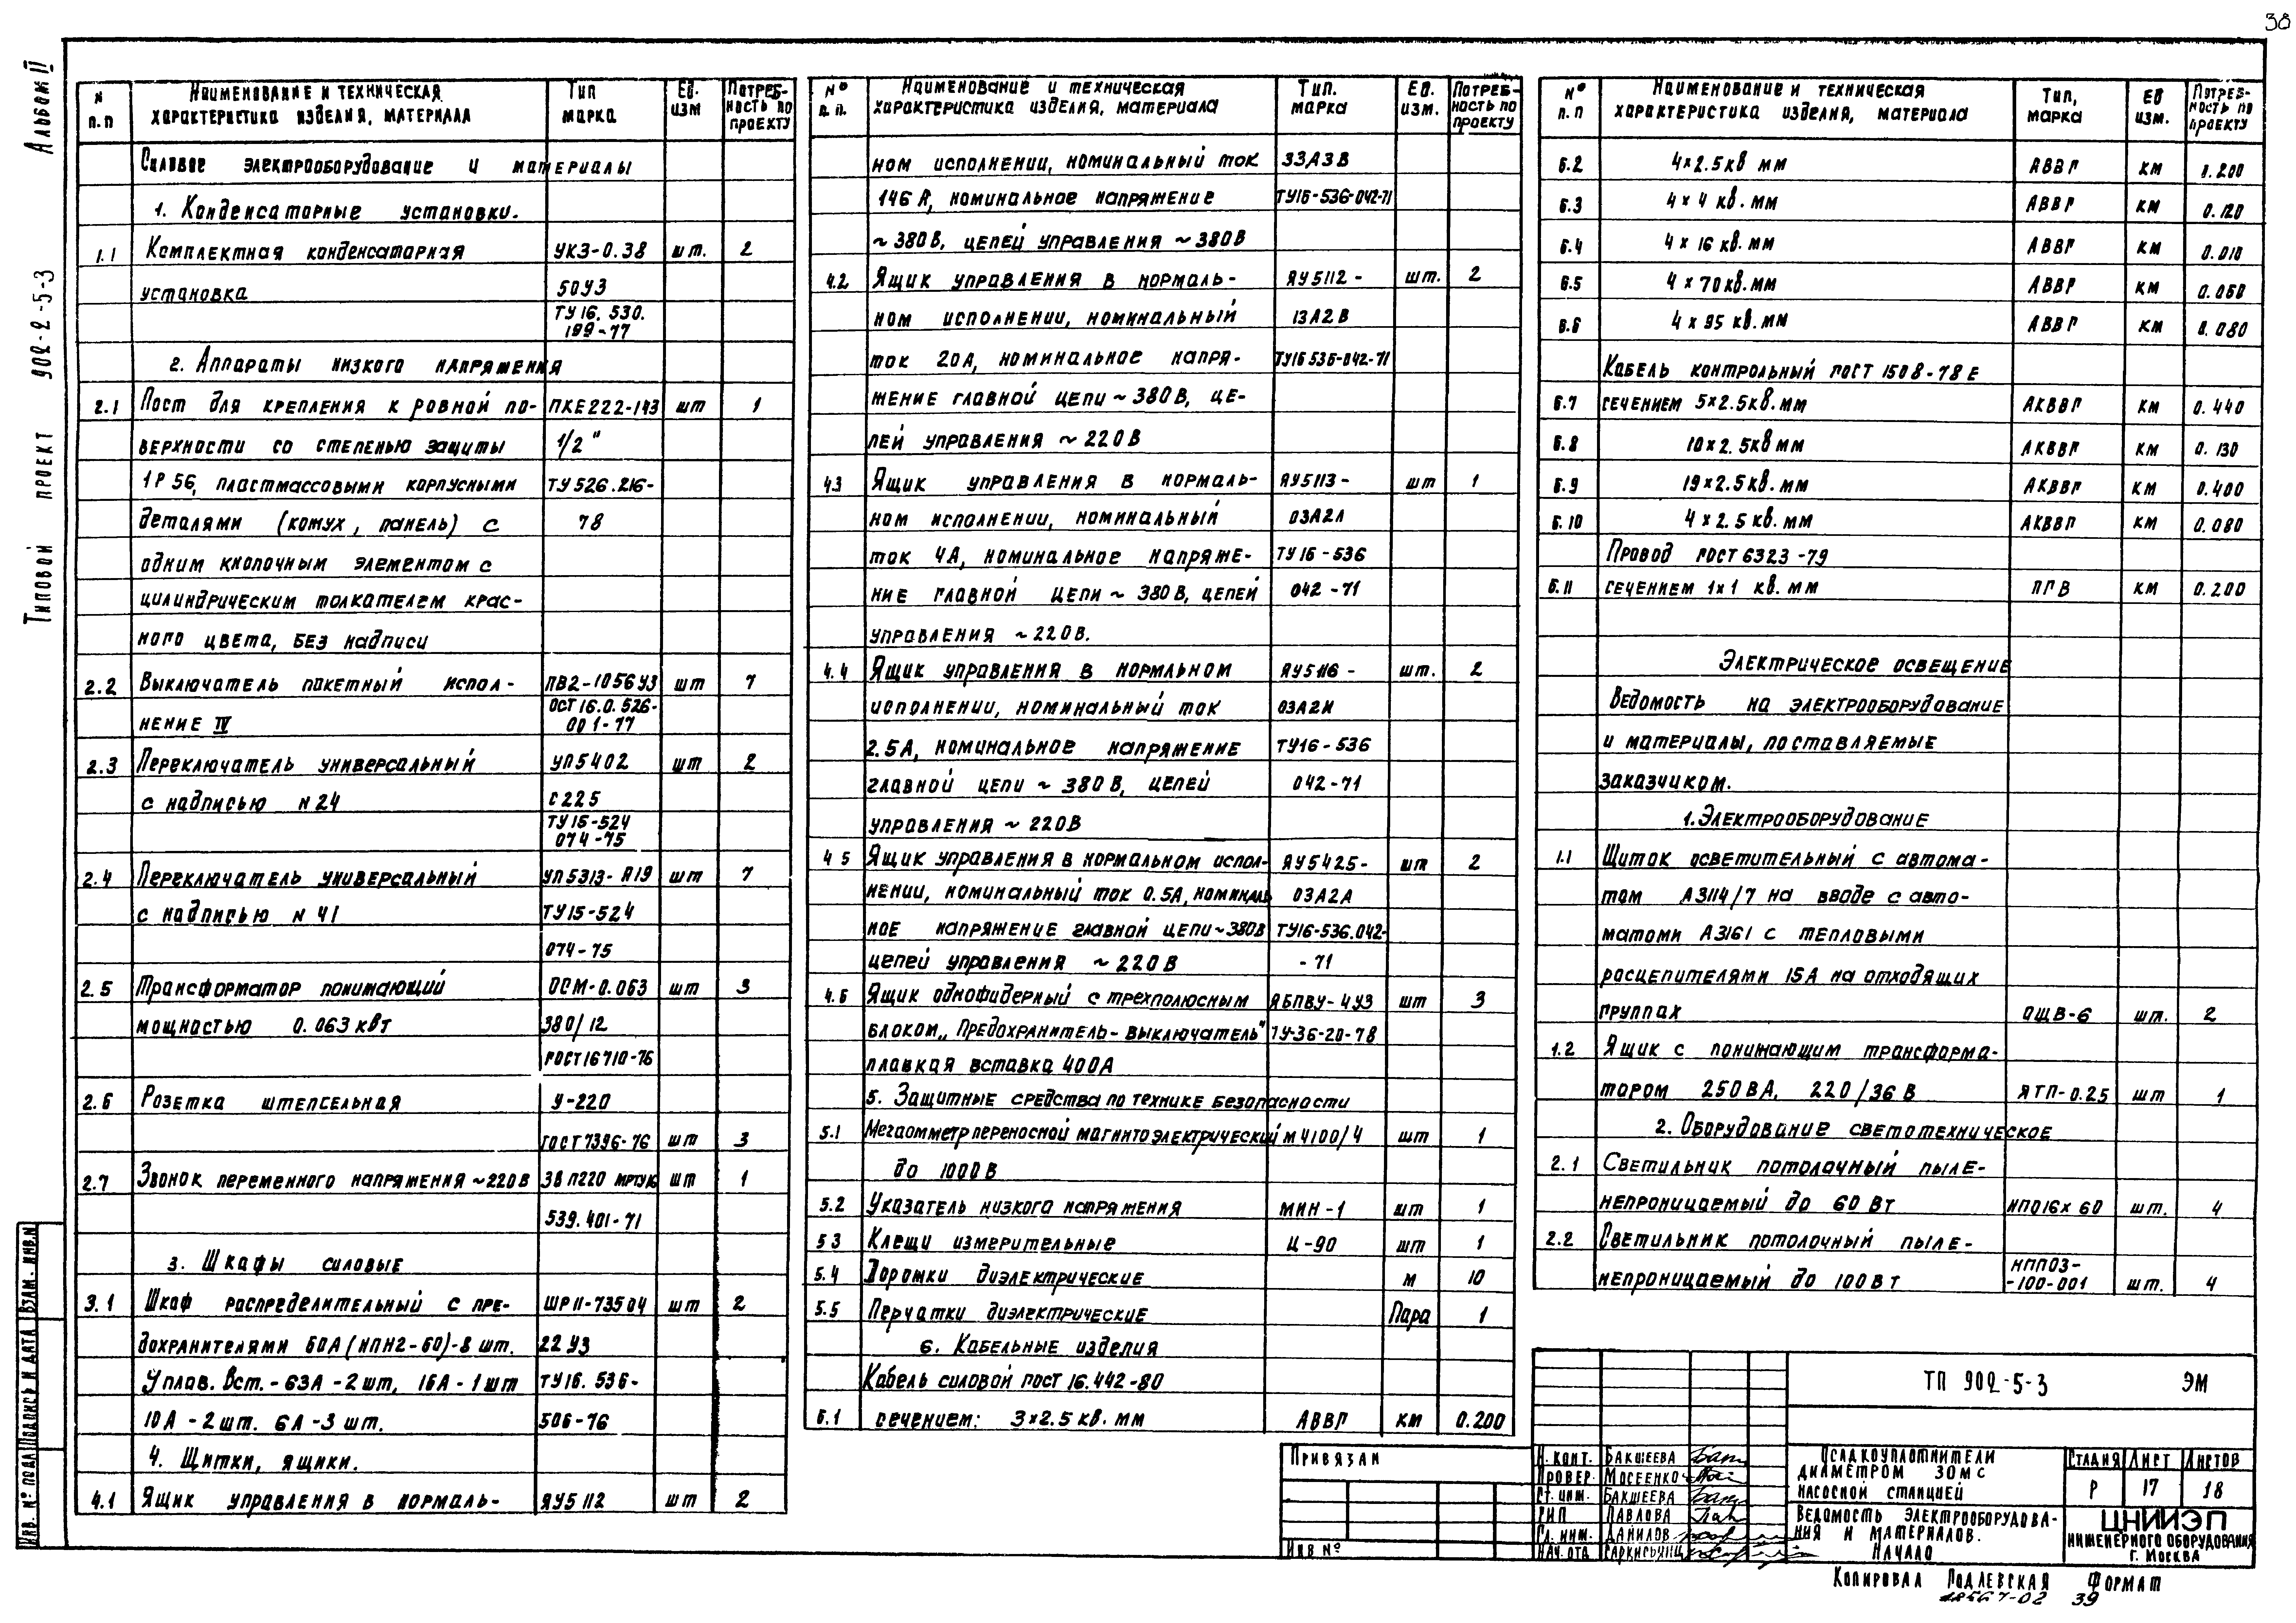 38
Альбом II
Типовой проект 902-2-5-3
N п.п Наименование и техническая характеристика изделия, материала Тип марка Ед. изм Потреб-ность по проекту
Силовое электрооборудование и материалы
1. Конденсаторные установки.
1.1 Комплектная конденсаторная УКЗ-0.38 шт. 2
установка 50У3
ТУ 16. 530.
199-77
2. Аппараты низкого напряжения
2.1 Пост для крепления к ровной по- ПКЕ222-143 шт 1
верхности со степенью защиты 1/2"
1Р 56, пластмассовыми корпусными ТУ 526.216-
деталями (кожух, панель) с 78
одним кнопочным элементом с
цилиндрическим толкателем крас-
ного цвета, без надписи
2.2 Выключатель пакетный испол- ПВ2-1056У3 шт 7
нение IV ОСТ 16.0.526-
001-77
2.3 Переключатель универсальный УП5402 шт 2
с надписью N 24 С225
ТУ 15-524
074-75
2.4 Переключатель универсальный УП5313-А19 шт 7
с надписью N 41 ТУ15-524
074-75
2.5 Трансформатор понижающий ОСМ-0.063 шт 3
мощностью 0.063 квт 380/12
ГОСТ 16710-76
2.6 Розетка штепсельная У-220
ГОСТ 7396-76 шт 3
2.7 Звонок переменного напряжения ~220В ЗВП220 МРТУ16 шт 1
539.401-71
3. Шкафы силовые
3.1 Шкаф распределительный с пре- ШР11-73504 шт 2
дохранителями 60А (НПН2-60)-8 шт. 22У3
Уплав. Вст.-63А-2шт, 16А-1шт ТУ16. 536-
10А-2шт. 6А-3шт. 506-76
4. Щитки, ящики.
4.1 Ящик управления в нормаль- ЯУ5112 шт 2
N° п.п. Наименование и техническая характеристика изделия, материала Тип. марка Ед. изм. Потреб-ность по проекту
ном исполнении, номинальный ток 33А3В
146 А, номинальное напряжение ТУ16-536-042-71
~380В, цепей управления ~380В
4.2 Ящик управления в нормаль- ЯУ5112- шт. 2
ном исполнении, номинальный 13А2В
ток 20А, номинальное напря- ТУ16 536-042-71
жение главной цепи ~380В, це-
пей управления ~220В
4.3 Ящик управления в нормаль- ЯУ5113- шт 1
ном исполнении, номинальный 03А2Л
ток 4А, номинальное напряже- ТУ16-536
ние главной цепи ~380В, цепей 042-71
управления ~220В.
4.4 Ящик управления в нормльном ЯУ5116- шт. 2
исполнении, номинальный ток 03А2И
2.5А, номинальное напряжение ТУ16-536
главной цепи ~380В, цепей 042-71
управления ~220В
4 5 Ящик управления в нормальном испол- ЯУ5425- шт 2
нении, номинальный ток 0.5А, номиналь 03А2А
ное напряжение главной цепи~380В ТУ16-536.042-
цепей управления ~220В -71
4.6 Ящик однофидерный с трехполюсным ЯБПВУ-4У3 шт 3
блоком „Предохранитель-выключатель" ТУ-36-20-78
плавкая вставка 400А
5. Защитные средства по технике безопасности
5.1 Мегаомметр переносной магнитоэлектрический М4100/4 шт 1
до 1000В
5.2 Указатель низкого напряжения МИН-1 шт 1
5 3 Клещи измерительные Ц-90 шт 1
5.4 Дорожки диэлектрические м 10
5.5 Перчатки диэлектрические Пара 1
6. Кабельные изделия
Кабель силовой гост 16.442-80
6.1 сечением: 3×2.5 кв. мм АВВГ км 0.200
N° п.п Наименование и техническая характеристика изделия, материала Тип, марка Ед изм. Потреб-ность по проекту
6.2 4×2.5кв мм АВВГ км 0.200
6.3 4×4 кв. мм АВВГ км 0.120
6.4 4×16 кв. мм АВВГ км 0.010
6.5 4×70кв. мм АВВГ км 0.060
6.6 4×95 кв. мм АВВГ км 0.080
Кабель контрольный ГОСТ 1508-78Е
6.7 сечением 5×2.5кв. мм АКВВГ км 0.440
6.8 10×2.5кв мм АКВВГ км 0.130
6.9 19×2.5кв. мм АКВВГ км 0.400
6.10 4×2.5 кв. мм АКВВГ км 0.080
Провод ГОСТ 6323-79
6.11 сечением 1×1 кв. мм ПГВ км 0.200
Электрическое освещение
Ведомость на электрооборудование
и материалы, поставляемые
заказчиком.
1. Электрооборудование
1.1 Щиток осветительный с автома-
том А3114/7 на вводе с авто-
матоми А3161 с тепловыми
расцепителями 15А на отходящих
группах ОЩВ-6 шт. 2
1.2 Ящик с понижающим трансформа-
тором 250ВА, 220/36 В ЯТП-0.25 шт 1
2. Оборудование светотехническое
2.1 Светильник потолочный пыле-
непроницаемый до 60 Вт НПО16×60 шт. 4
2.2 Светильник потолочный пыле-
непроницаемый до 100 Вт НПП03--100-001 шт. 4
ТП 902-5-3 ЭМ
Привязан
Инв N°
Н. конт. Бакшеева
Провер. Мосеенко
Ст. инж. Бакшеева
ГИП Павлова
Гл. инж. Данилов
Нач. отд Саркисьянц
Осадкоуплотнители
диаметром 30м с
насосной станцией
Стадия Лист Листов
Р 17 18
Ведомость электрооборудова-
ния и материалов.
Начало
ЦНИИЭП
инженерного оборудования
г. Москва
Копировал Подлевская Формат
18567-02 39
Инв. N° подл Подпись и дата Взам. инв. N